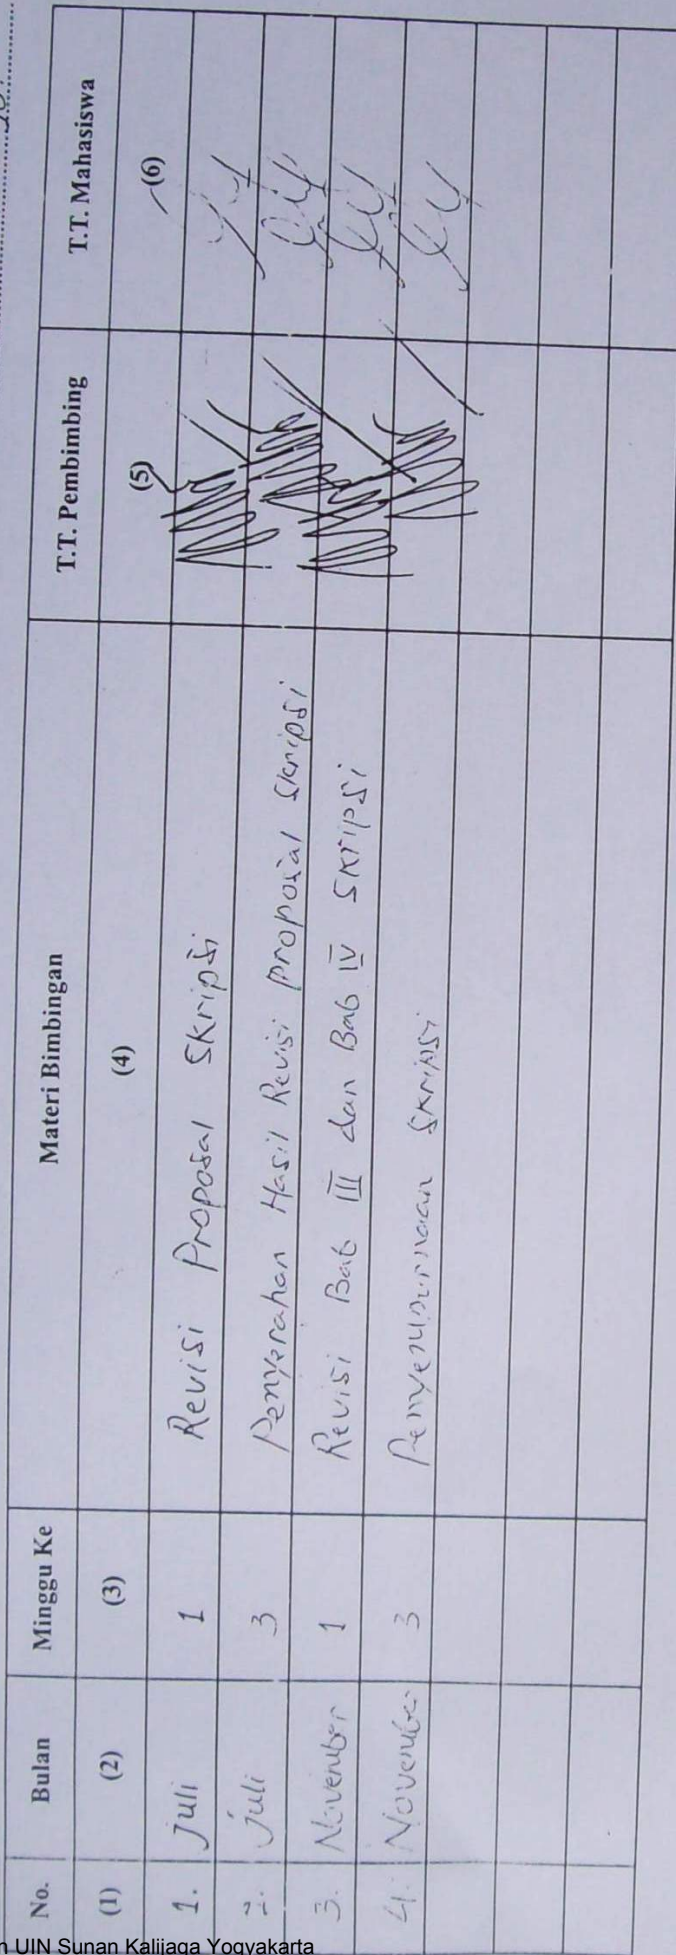 No. Bulan Minggu Ke Materi Bimbingan T.T. Pembimbing T.T. Mahasiswa
(1) (2) (3) (4) (5) (6)
1. Juli 1 Revisi Proposal Skripsi
2. Juli 3 Penyerahan Hasil Revisi proposal Skripsi
3. November 1 Revisi Bab III dan Bab IV Skripsi
4. November 3 Penyempurnaan Skripsi
UIN Sunan Kalijaga Yogyakarta